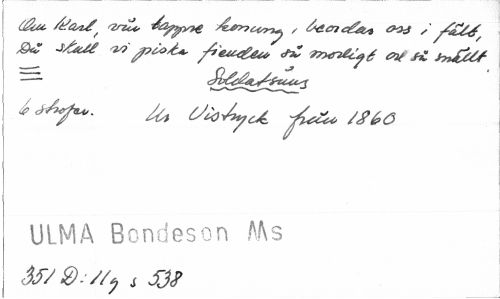 Om Karl, vår tappre konung, beordar oss i fält,
Då skall vi piska fienden så modigt och så snällt.
Soldatsång
6 strofer. Ur Vistryck från 1860
ULMA Bondeson Ms
351 D:11g s 538